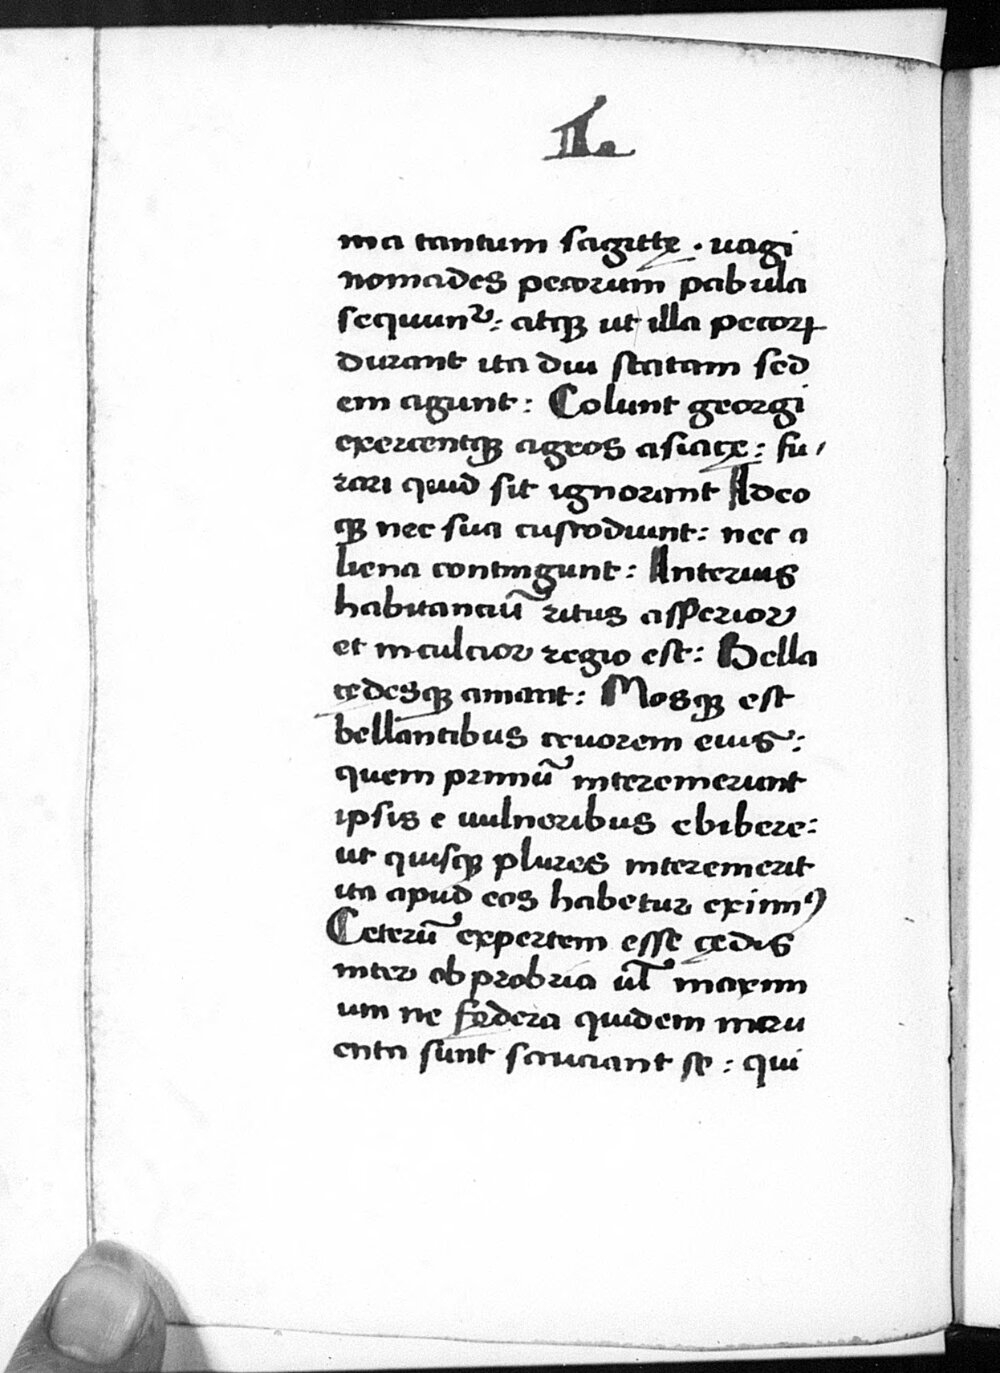 II.
ma tantum sagittę . uagi
nomades pecorum pabula
sequunt᷑ : atqꝫ ut illa pecoꝝ
durant ita diu statam sed
em agunt : Colunt georgi
exercentqꝫ agros asiacę : fu/
rari quid sit ignorant Adeo
qꝫ nec sua custodiunt : nec a
liena contingunt : Interius
habitanciū ritus asperior
et incultior regio est : Bella
cędesqꝫ amant : Mosqꝫ est
bellantibus cruorem eius :
quem primū interemerunt
ipsis e uulneribus ebibere :
ut quisqꝫ plures interemerit
ita apud eos habetur eximiꝰ
Ceterū expertem esse cędis
inter obprobria ūl maxim
um ne fędera quidem incru
enta sunt sauciant se : qui